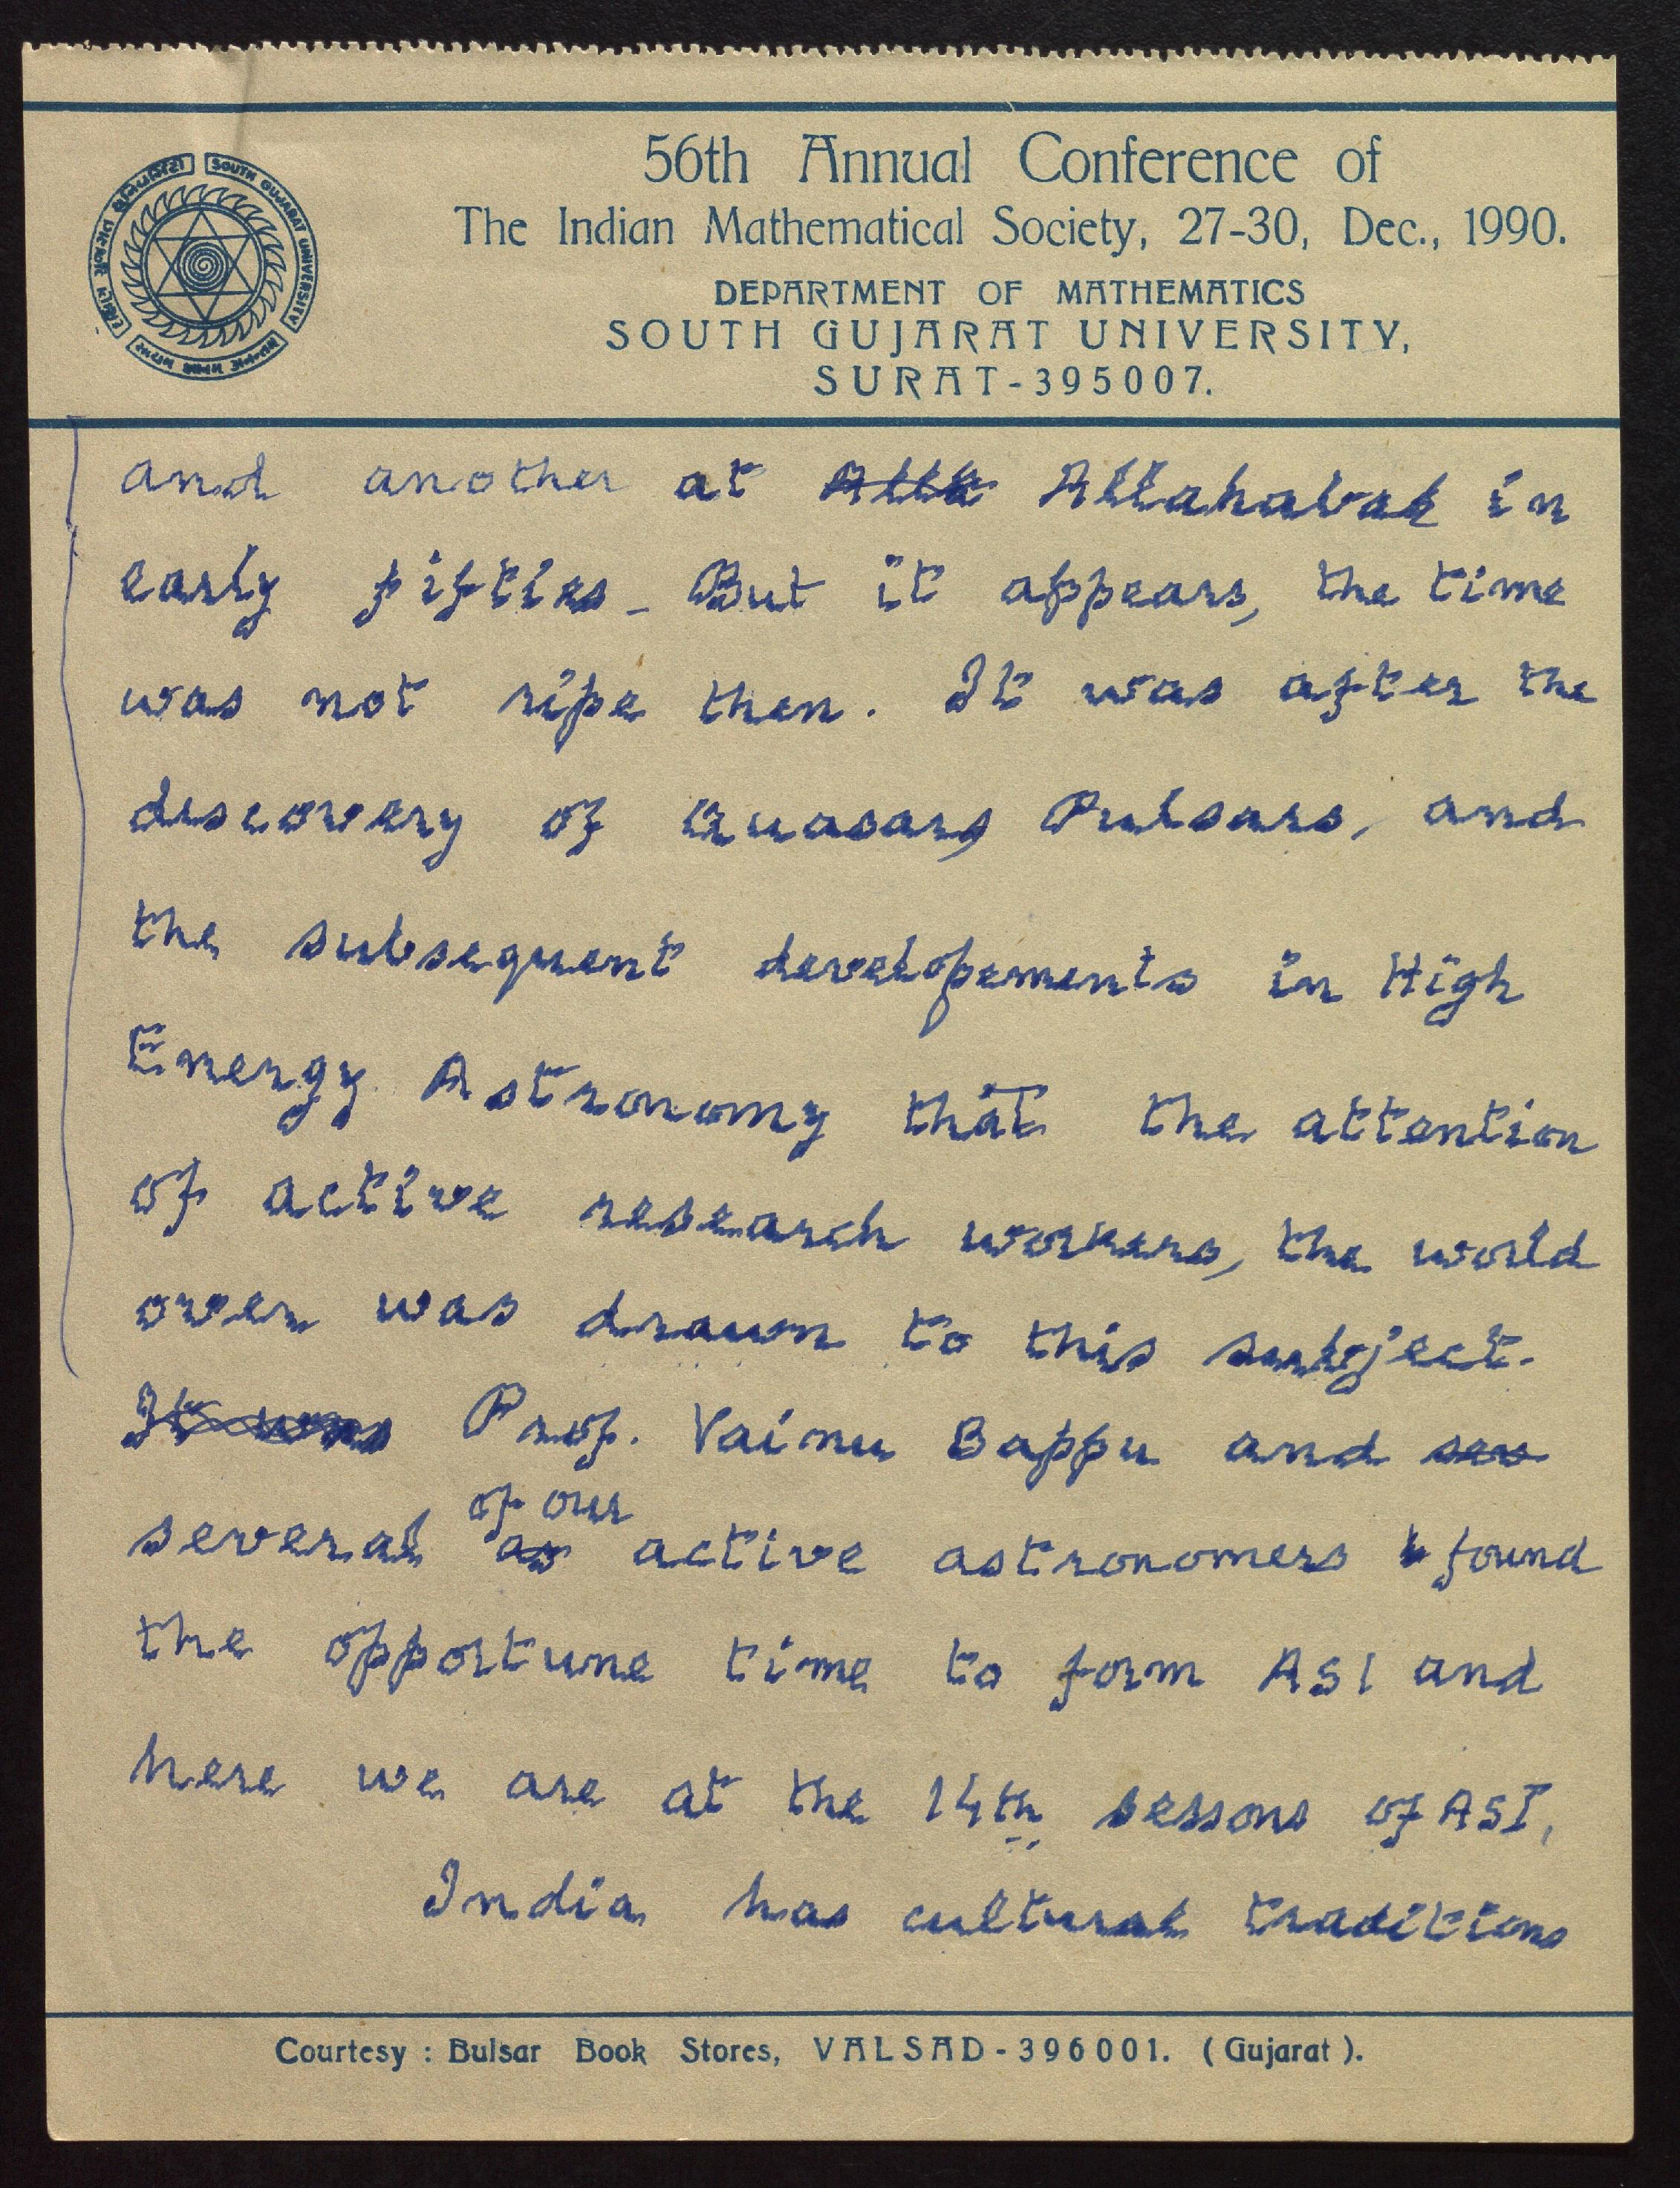 SOUTH GUJARAT UNIVERSITY
56th Annual Conference of
The Indian Mathematical Society, 27-30, Dec., 1990.
DEPARTMENT OF MATHEMATICS
SOUTH GUJARAT UNIVERSITY,
SURAT-395007.
and another at Alla Allahabad in
early fifties. But it appears, the time
was not ripe then. It was after the
discovery of Quasars, Pulsars, and
the subsequent developements in High
Energy Astronomy that the attention
of active research workers, the world
over was drawn to this subject.
It was Prof. Vainu Bappu and sev
of our
several as active astronomers found
the opportune time to form ASI and
here we are at the 14th sessons of ASI,
India has cultural traditions
Courtesy : Bulsar Book Stores, VALSAD-396001. (Gujarat).